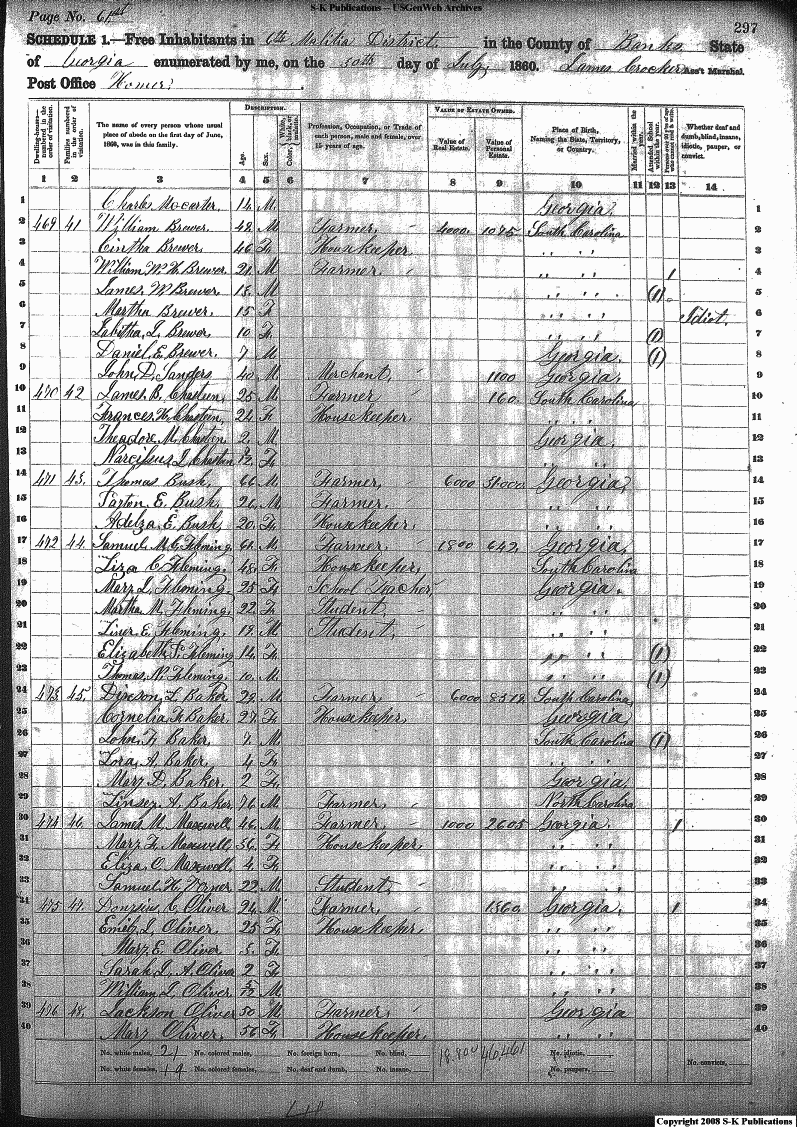 S-K Publications -- USGenWeb Archives
Page No. 61st
297
SCHEDULE 1.—Free Inhabitants in 6th Malitia District in the County of Banks State
of Georgia enumerated by me, on the 30th day of July, 1860. James Crocker Ass't Marshal.
Post Office Homer
DESCRIPTION. VALUE OF ESTATE OWNED.
Dwelling-houses—numbered in the order of visitation. Families numbered in the order of visitation. The name of every person whose usual place of abode on the first day of June, 1860, was in this family. Age. Sex. Color, Profession, Occupation, or Trade of each person, male and female, over 15 years of age. Value of Real Estate. Value of Personal Estate. Place of Birth, Naming the State, Territory, or Country. Married within the year. Attended School within the year. Whether deaf and dumb, blind, insane, idiotic, pauper, or convict.
1 2 3 4 5 6 7 8 9 10 11 12 13 14
1 14 M Georgia 1
2 469 41 William Brewer 48 M Farmer 4000 1095 South Carolina 2
3 Cintha Brewer 46 F Housekeeper " " 3
4 William W. H. Brewer 21 M Farmer " " 1 4
5 James M Brewer M " " (1) 5
6 Martha Brewer 15 F " " Idiot 6
7 Tabitha J. Brewer 10 F " " (1) 7
8 Daniel E. Brewer 7 M Georgia (1) 8
9 John D. Sanders 40 M Merchant 1100 Georgia 9
10 470 42 James B. Chastien 25 M Farmer 160 South Carolina 10
11 Frances H. Chastein 24 F Housekeeper " " 11
12 Theadore M. Chastin 2 M Georgia 12
13 F " " 13
14 471 43 Thomas Bush 66 M Farmer 6000 Georgia 14
15 E. Bush 26 M Farmer " " 15
16 E. Bush 20 F Housekeeper " " 16
17 472 44 Samuel M. C. Fleming 61 M Farmer 1800 642 Georgia 17
18 Liza C. Fleming 48 F Housekeeper South Carolina 18
19 Mary J. Fleming 25 F School Teacher Georgia 19
20 Martha M. Fleming 22 F Student " " 20
21 E. Fleming 19 M Student " " 21
22 Elizabeth F. Fleming 14 F " " (1) 22
23 Thomas N. Fleming 10 M " " (1) 23
24 473 45 L. Baker 29 M Farmer 6000 8519 South Carolina 24
25 Cornelia F. Baker 27 F Housekeeper Georgia 25
26 John F. Baker 7 M South Carolina (1) 26
27 Lora A. Baker 4 F " " 27
28 Mary D. Baker 2 F Georgia 28
29 Linsey A. Baker 76 M Farmer North Carolina 29
30 474 46 James M. Maxewell 46 M Farmer 1000 2605 Georgia 1 30
31 Mary F. Maxewell 56 F Housekeeper " " 31
32 Eliza O. Maxewell 4 F " " 32
33 Samuel H. Verner 22 M Student " " 33
34 475 47 C. Oliver 24 M Farmer 1860 Georgia 1 34
35 Emily J. Oliver 25 F Housekeeper " " 35
36 Mary E. Oliver 5 F " " 36
37 Sarah J. A. Oliver 2 F " " 37
38 William J. Oliver M " " 38
39 476 48 Jackson Oliver 50 M Farmer Georgia 39
40 Mary Oliver 56 F Housekeeper " " 40
No. white males, 21 No. colored males, No. foreign born, No. blind, No. idiotic,
No. white females, 19 No. colored females, No. deaf and dumb, No. insane, No. paupers, No. convicts,
Copyright 2008 S-K Publications